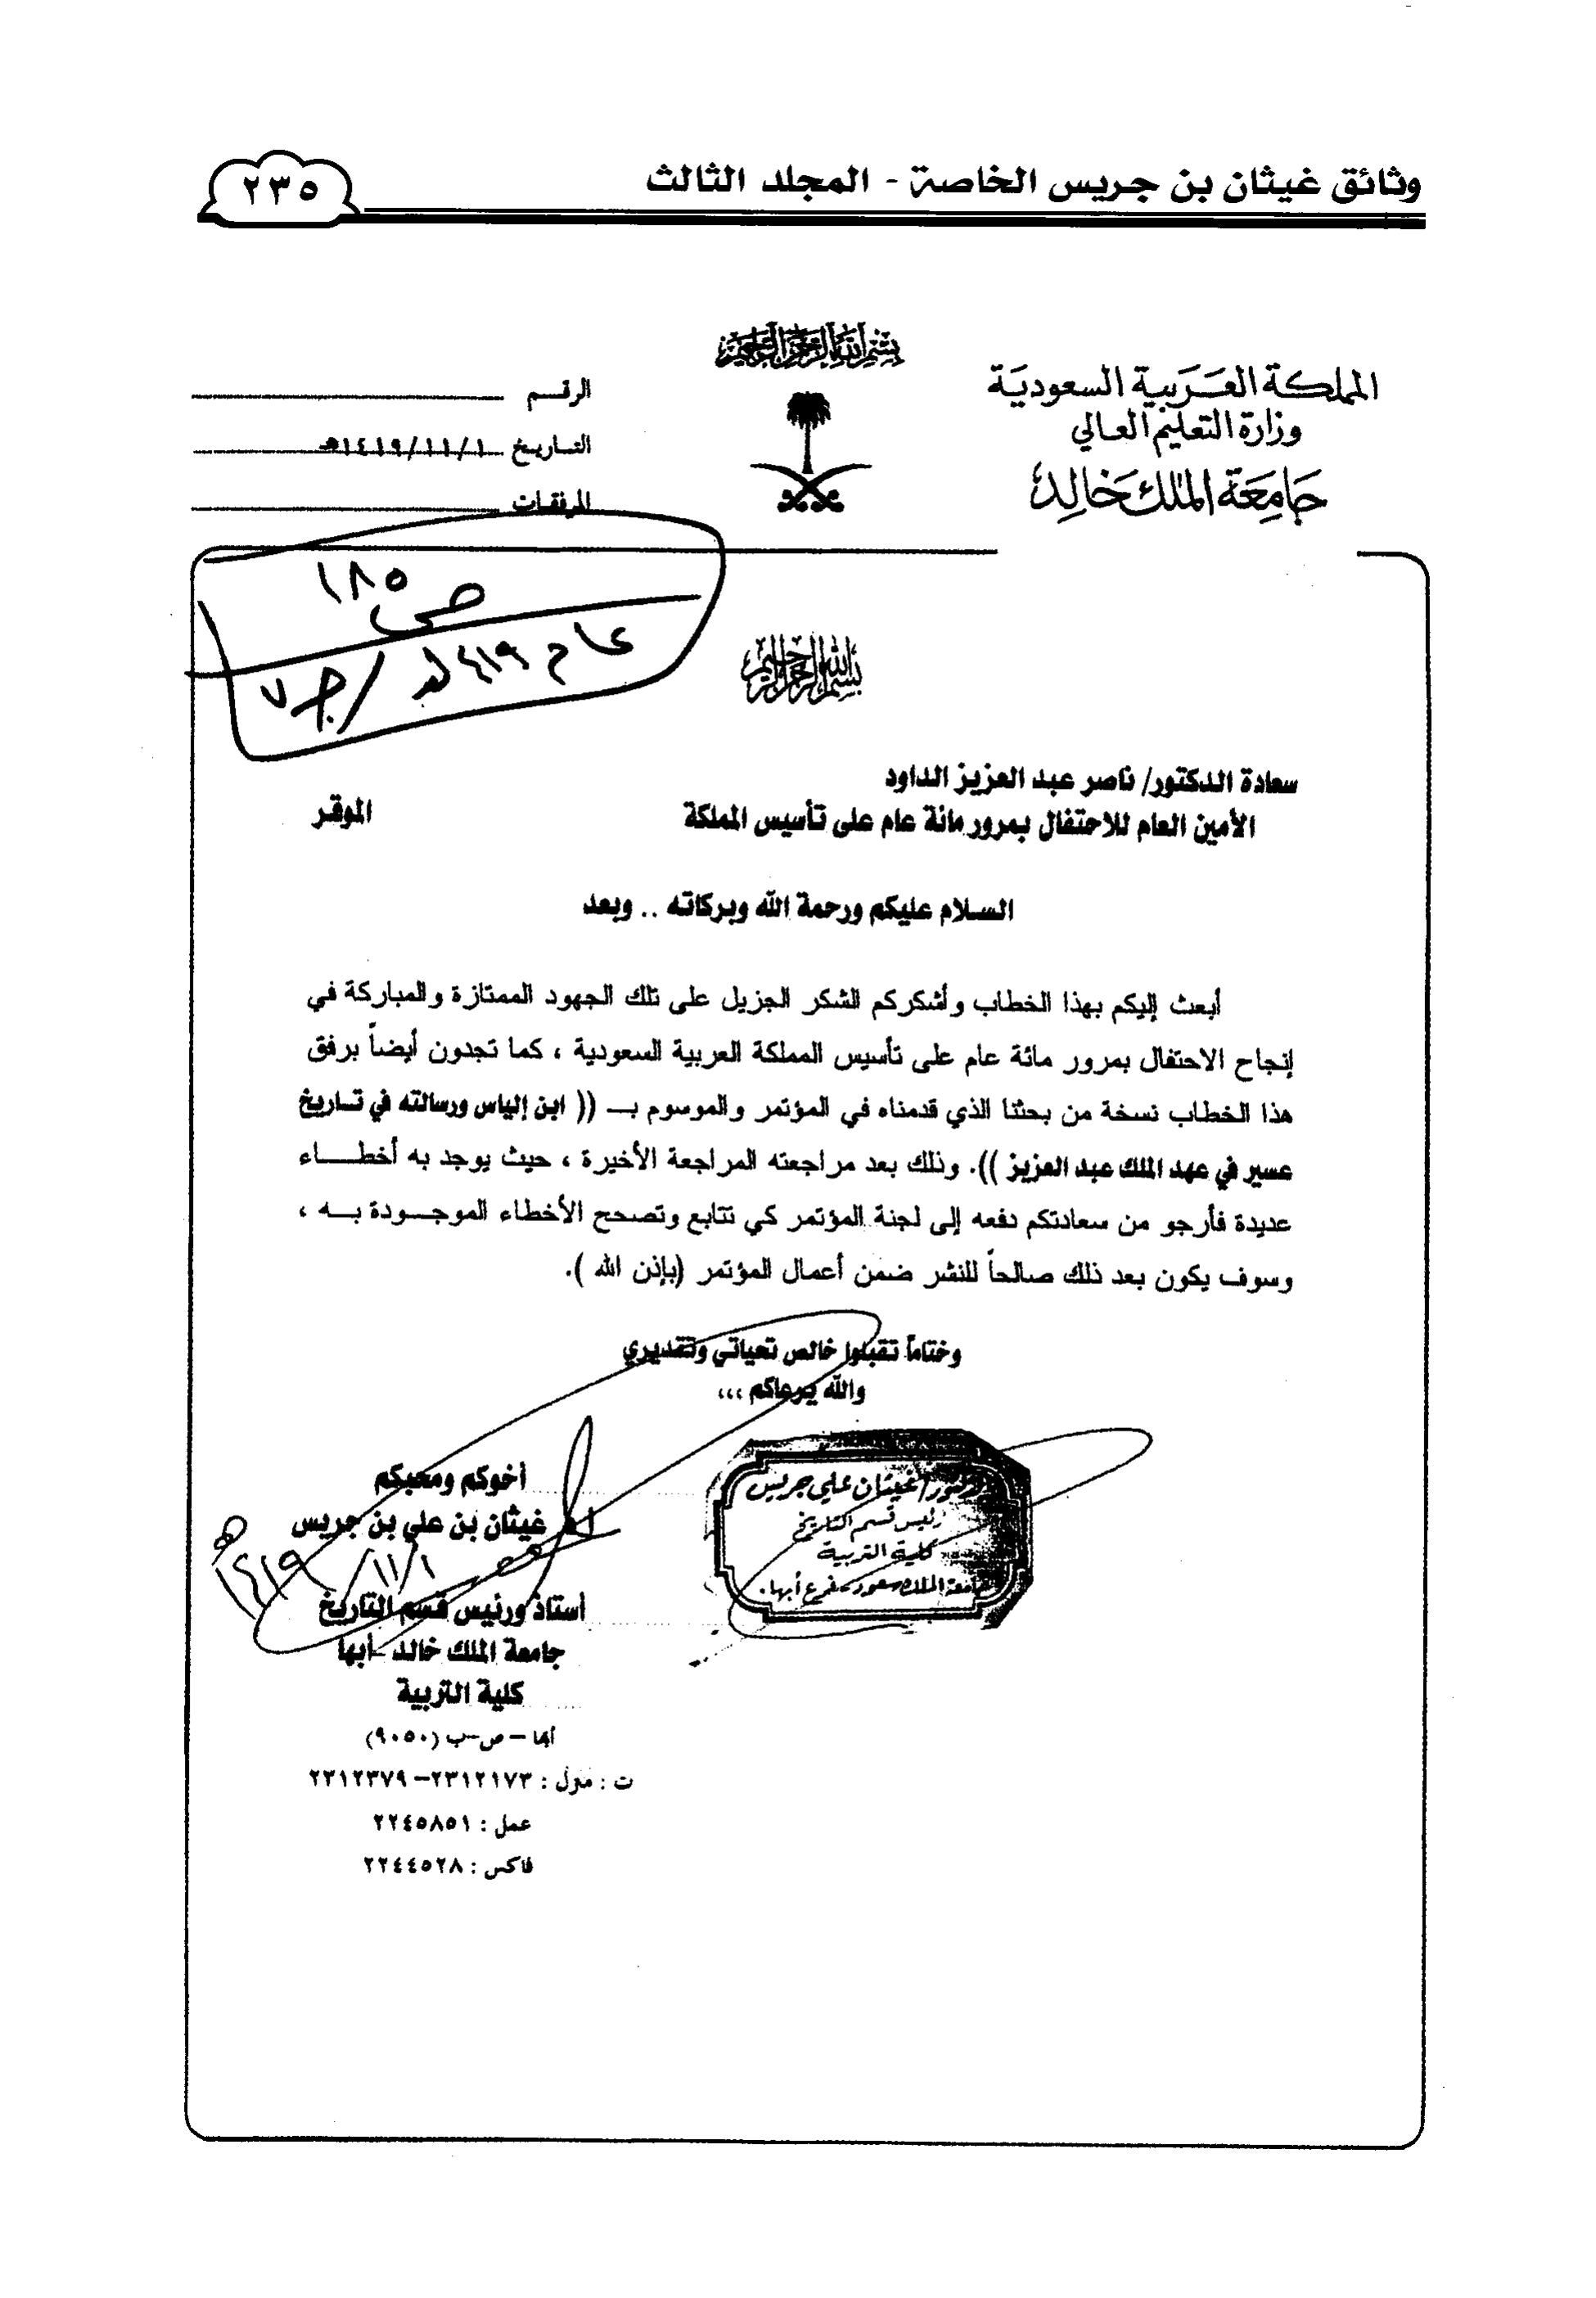 وثائق غيثان بن جريس الخاصة - المجلد الثالث
٢٣٥
بسم الله الرحمن الرحيم
المملكة العربية السعودية
وزارة التعليم العالي
جامعة الملك خالد
الرقم
التاريخ ١/١١/١٤١٩هـ
المرفقات
ص ١٨٥
عام ١٤١٩هـ / ج ٧
بسم الله الرحمن الرحيم
سعادة الدكتور/ ناصر عبد العزيز الداود
الأمين العام للاحتفال بمرور مائة عام على تأسيس المملكة الموقر
السلام عليكم ورحمة الله وبركاته .. وبعد
أبعث إليكم بهذا الخطاب وأشكركم الشكر الجزيل على تلك الجهود الممتازة والمباركة في
إنجاح الاحتفال بمرور مائة عام على تأسيس المملكة العربية السعودية ، كما تجدون أيضاً برفق
هذا الخطاب نسخة من بحثنا الذي قدمناه في المؤتمر والموسوم بـ (( ابن إلياس ورسالته في تاريخ
عسير في عهد الملك عبد العزيز )). وذلك بعد مراجعته المراجعة الأخيرة ، حيث يوجد به أخطـــاء
عديدة فأرجو من سعادتكم دفعه إلى لجنة المؤتمر كي تتابع وتصحح الأخطاء الموجـــودة بـــه ،
وسوف يكون بعد ذلك صالحاً للنشر ضمن أعمال المؤتمر (بإذن الله ).
وختاماً تقبلوا خالص تحياتي وتقديري
والله يرعاكم ،،،
أخوكم ومحبكم
أ.د غيثان بن علي بن جريس
١/١١/١٤١٩هـ
أستاذ ورئيس قسم التاريخ
جامعة الملك خالد - أبها
كلية التربية
أبها – ص-ب (٩٠٥٠)
ت : منزل : ٢٣١٢١٧٣– ٢٣١٢٣٧٩
عمل : ٢٢٤٥٨٥١
فاكس : ٢٢٤٤٥٢٨
غيثان علي جريس
رئيس قسم التاريخ
كلية التربية
جامعة الملك سعود - فرع أبها.